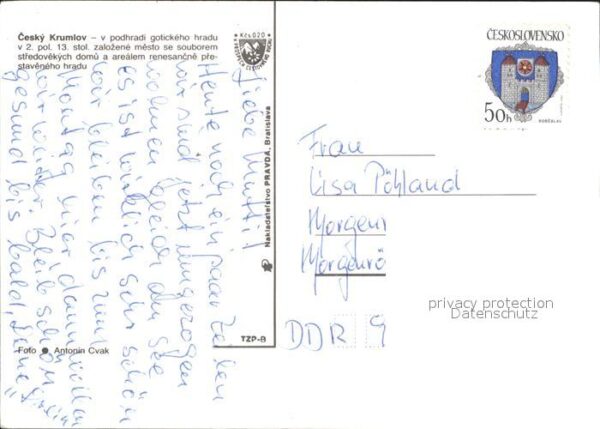 Český Krumlov – v podhradí gotického hradu
v 2. pol. 13. stol. založené město se souborem
středověkých domů a areálem renesančně pře-
stavěného hradu
Kčs 0,20
Liebe Mutti!
Heute noch ein paar Zeilen
wir sind jetzt umgezogen
wohnen wieder am See
es ist wirklich sehr schön
wir bleiben bis zum
Montag hier dann
wir wieder Bleib schön
gesund bis bald, Deine
Foto ● Antonín Cvak
Nakladatelstvo PRAVDA, Bratislava
TZP-8
ČESKOSLOVENSKO
50h
Frau
Lisa Pöhland
Morgen
Morgenrö
DDR 9
privacy protection
Datenschutz